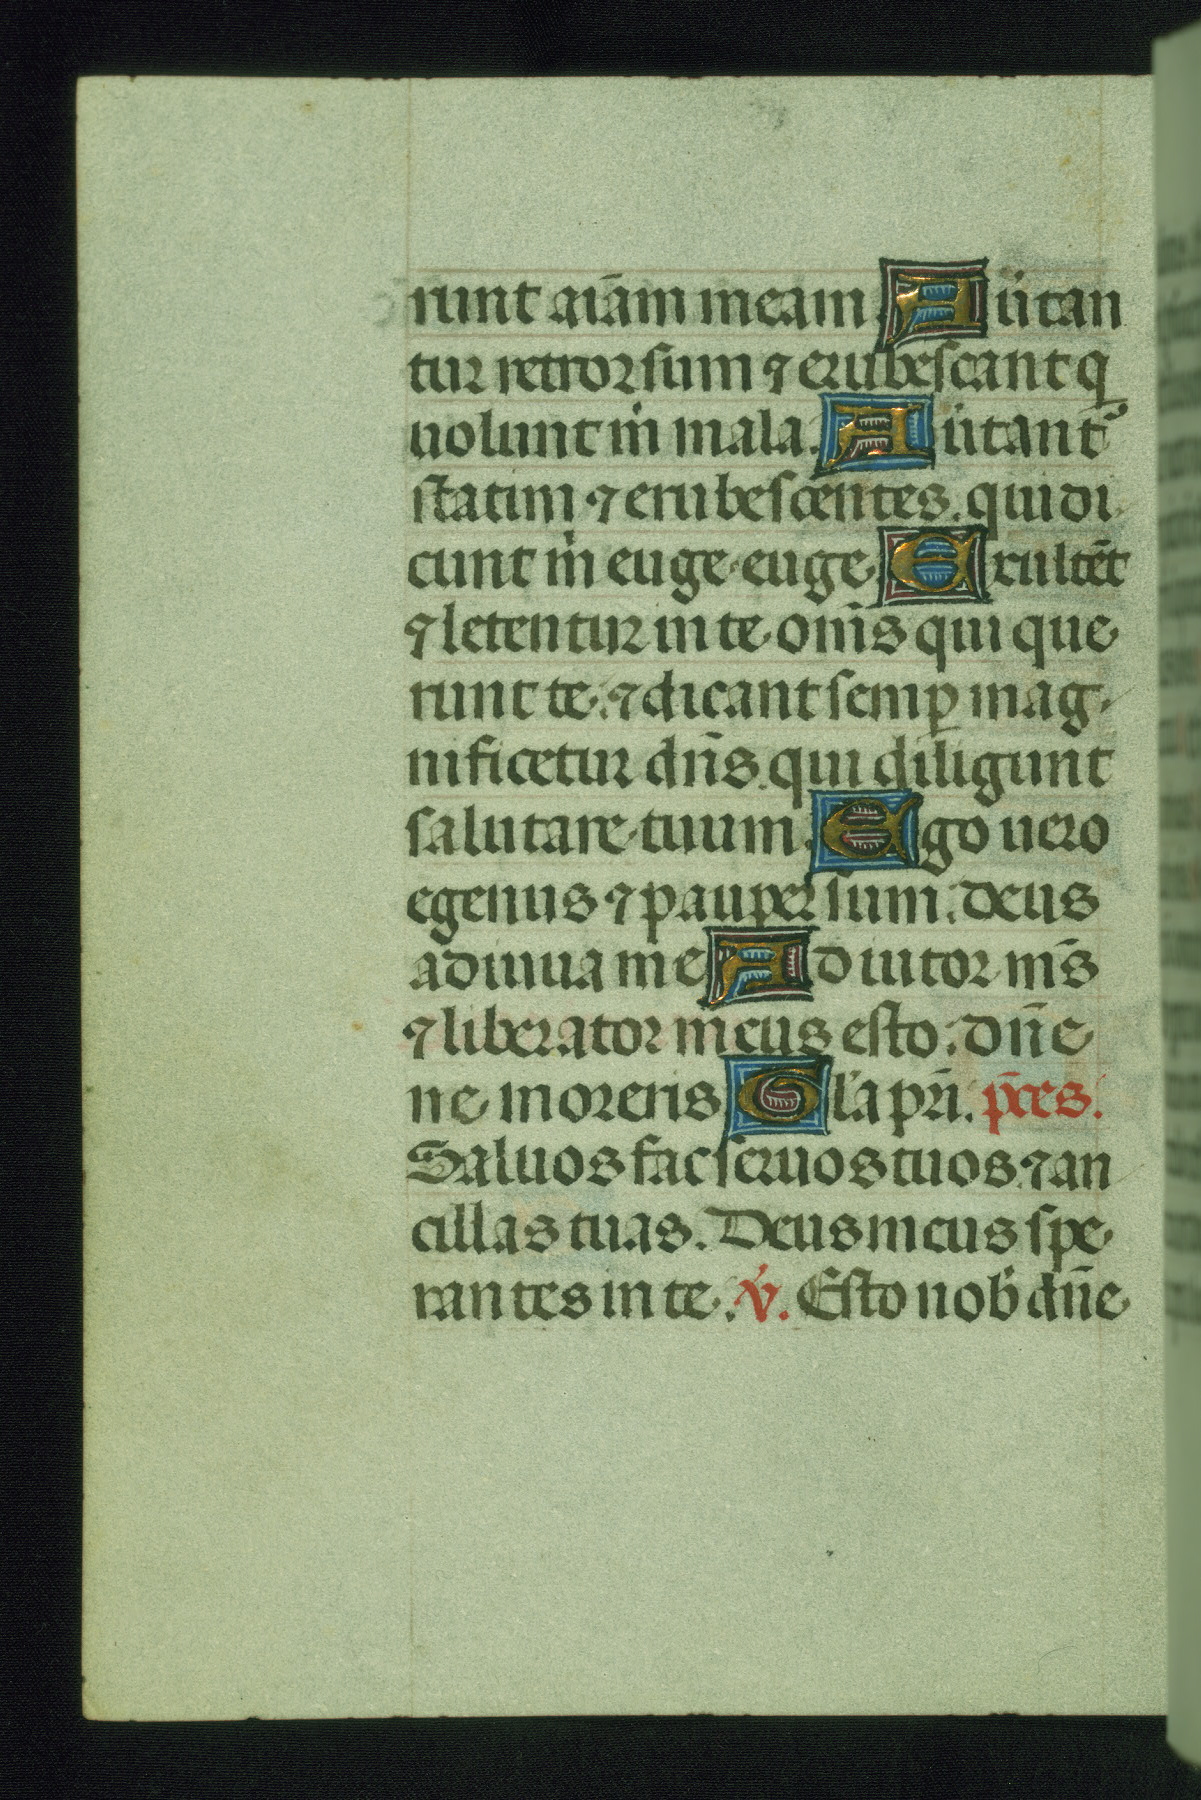 runt aīam meam. Aūtan
tur retrorsum ⁊ erubescant q
uolunt m̄ mala. Aūtant᷒
statim ⁊ erubescentes. qui di
cunt m̄ euge euge. Exultēt
⁊ letentur in te om̄s qui que
runt te. ⁊ dicant semꝑ mag
nificetur dn̄s. qui diligunt
salutare tuum. Ego uero
egenus ⁊ pauper sum. deus
adiuua me Adiutor m̄s
⁊ liberator meus esto. dn̄e
ne moreris Gl'a pr̄i. p̄ces.
Saluos fac seruos tuos. ⁊ an
cillas tuas. Deus meus spe
rantes in te. ℣. Esto nob' dn̄e